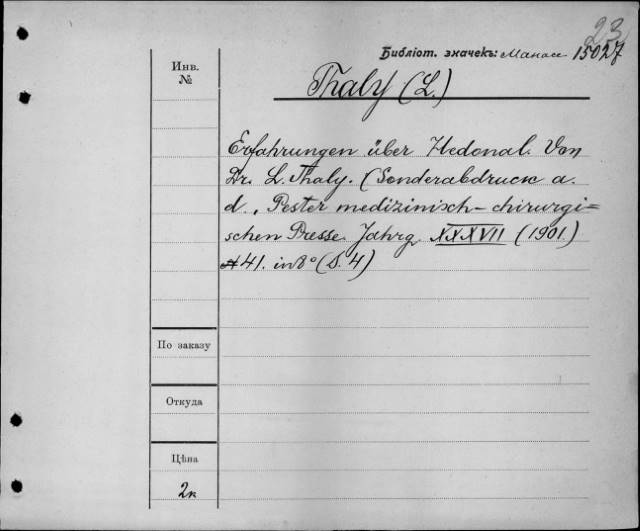 23
Библіот. значекъ: Манасе 15027
Инв.
№
Thaly (L.)
Erfahrungen über Hedonal. Von
Dr. L. Thaly. (Sonderabdruck a.
d., Pester medizinisch-chirurgi=
schen Presse. Jahrg. XXXVII (1901.)
№ 41. in 8° (S. 4)
По заказу
Откуда
Цѣна
2к